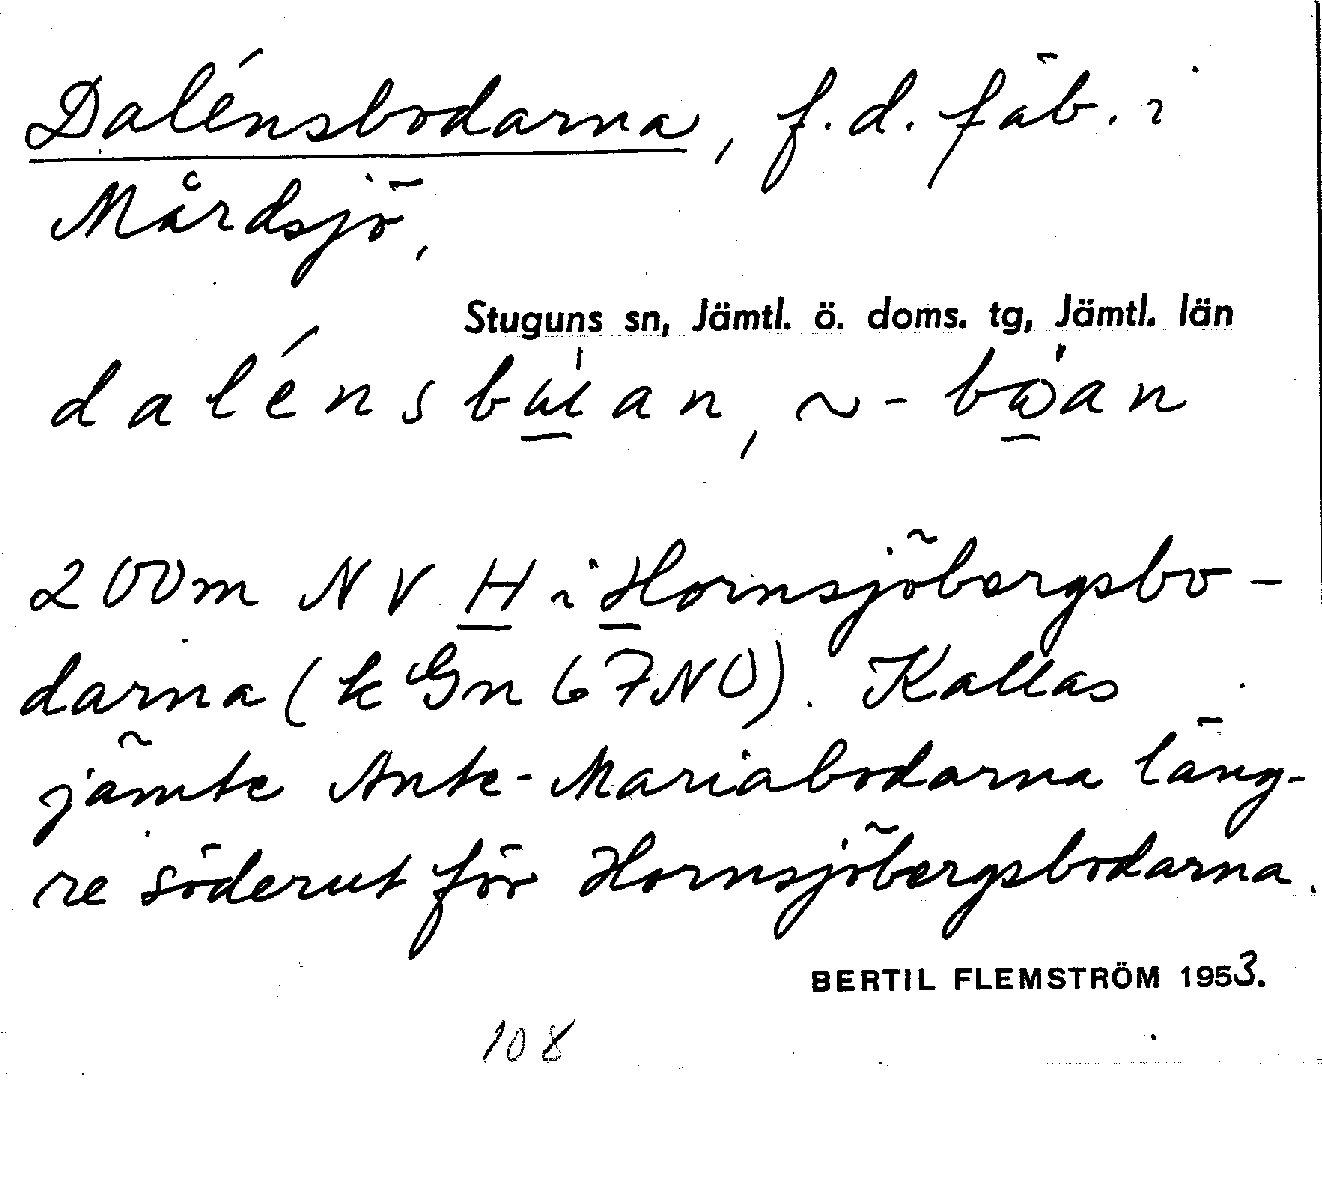 Dalénsbodarna, f.d. fäb. i
Mårdsjö,
Stuguns sn, Jämtl. ö. doms. tg, Jämtl. län
200m NV H i Hornsjöbergsbo-
darna (k Gn 67NO). Kallas
jämte Ante-Mariabodarna läng-
re söderut för Hornsjöbergsbodarna.
BERTIL FLEMSTRÖM 1953.
108